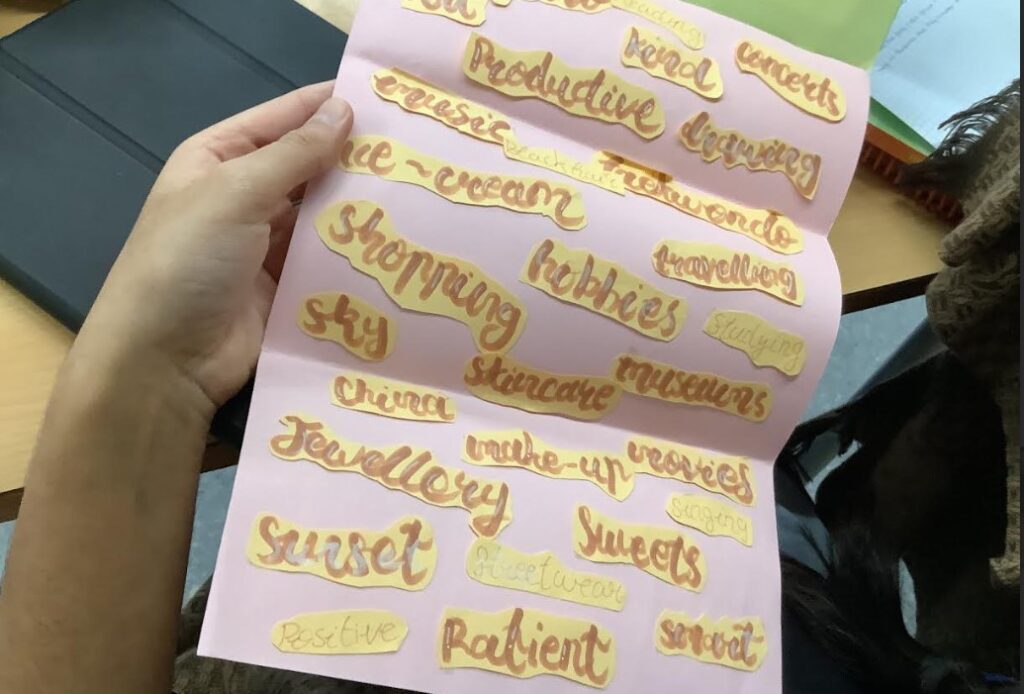 reading
kind concerts
Productive
music drawing
black hair Taekwondo
ice-cream
Shopping hobbies travelling
sky studying
skincare museums
china
Jewellory make-up movies
singing
Sunset Sweets
Streetwear
Positive Patient smart